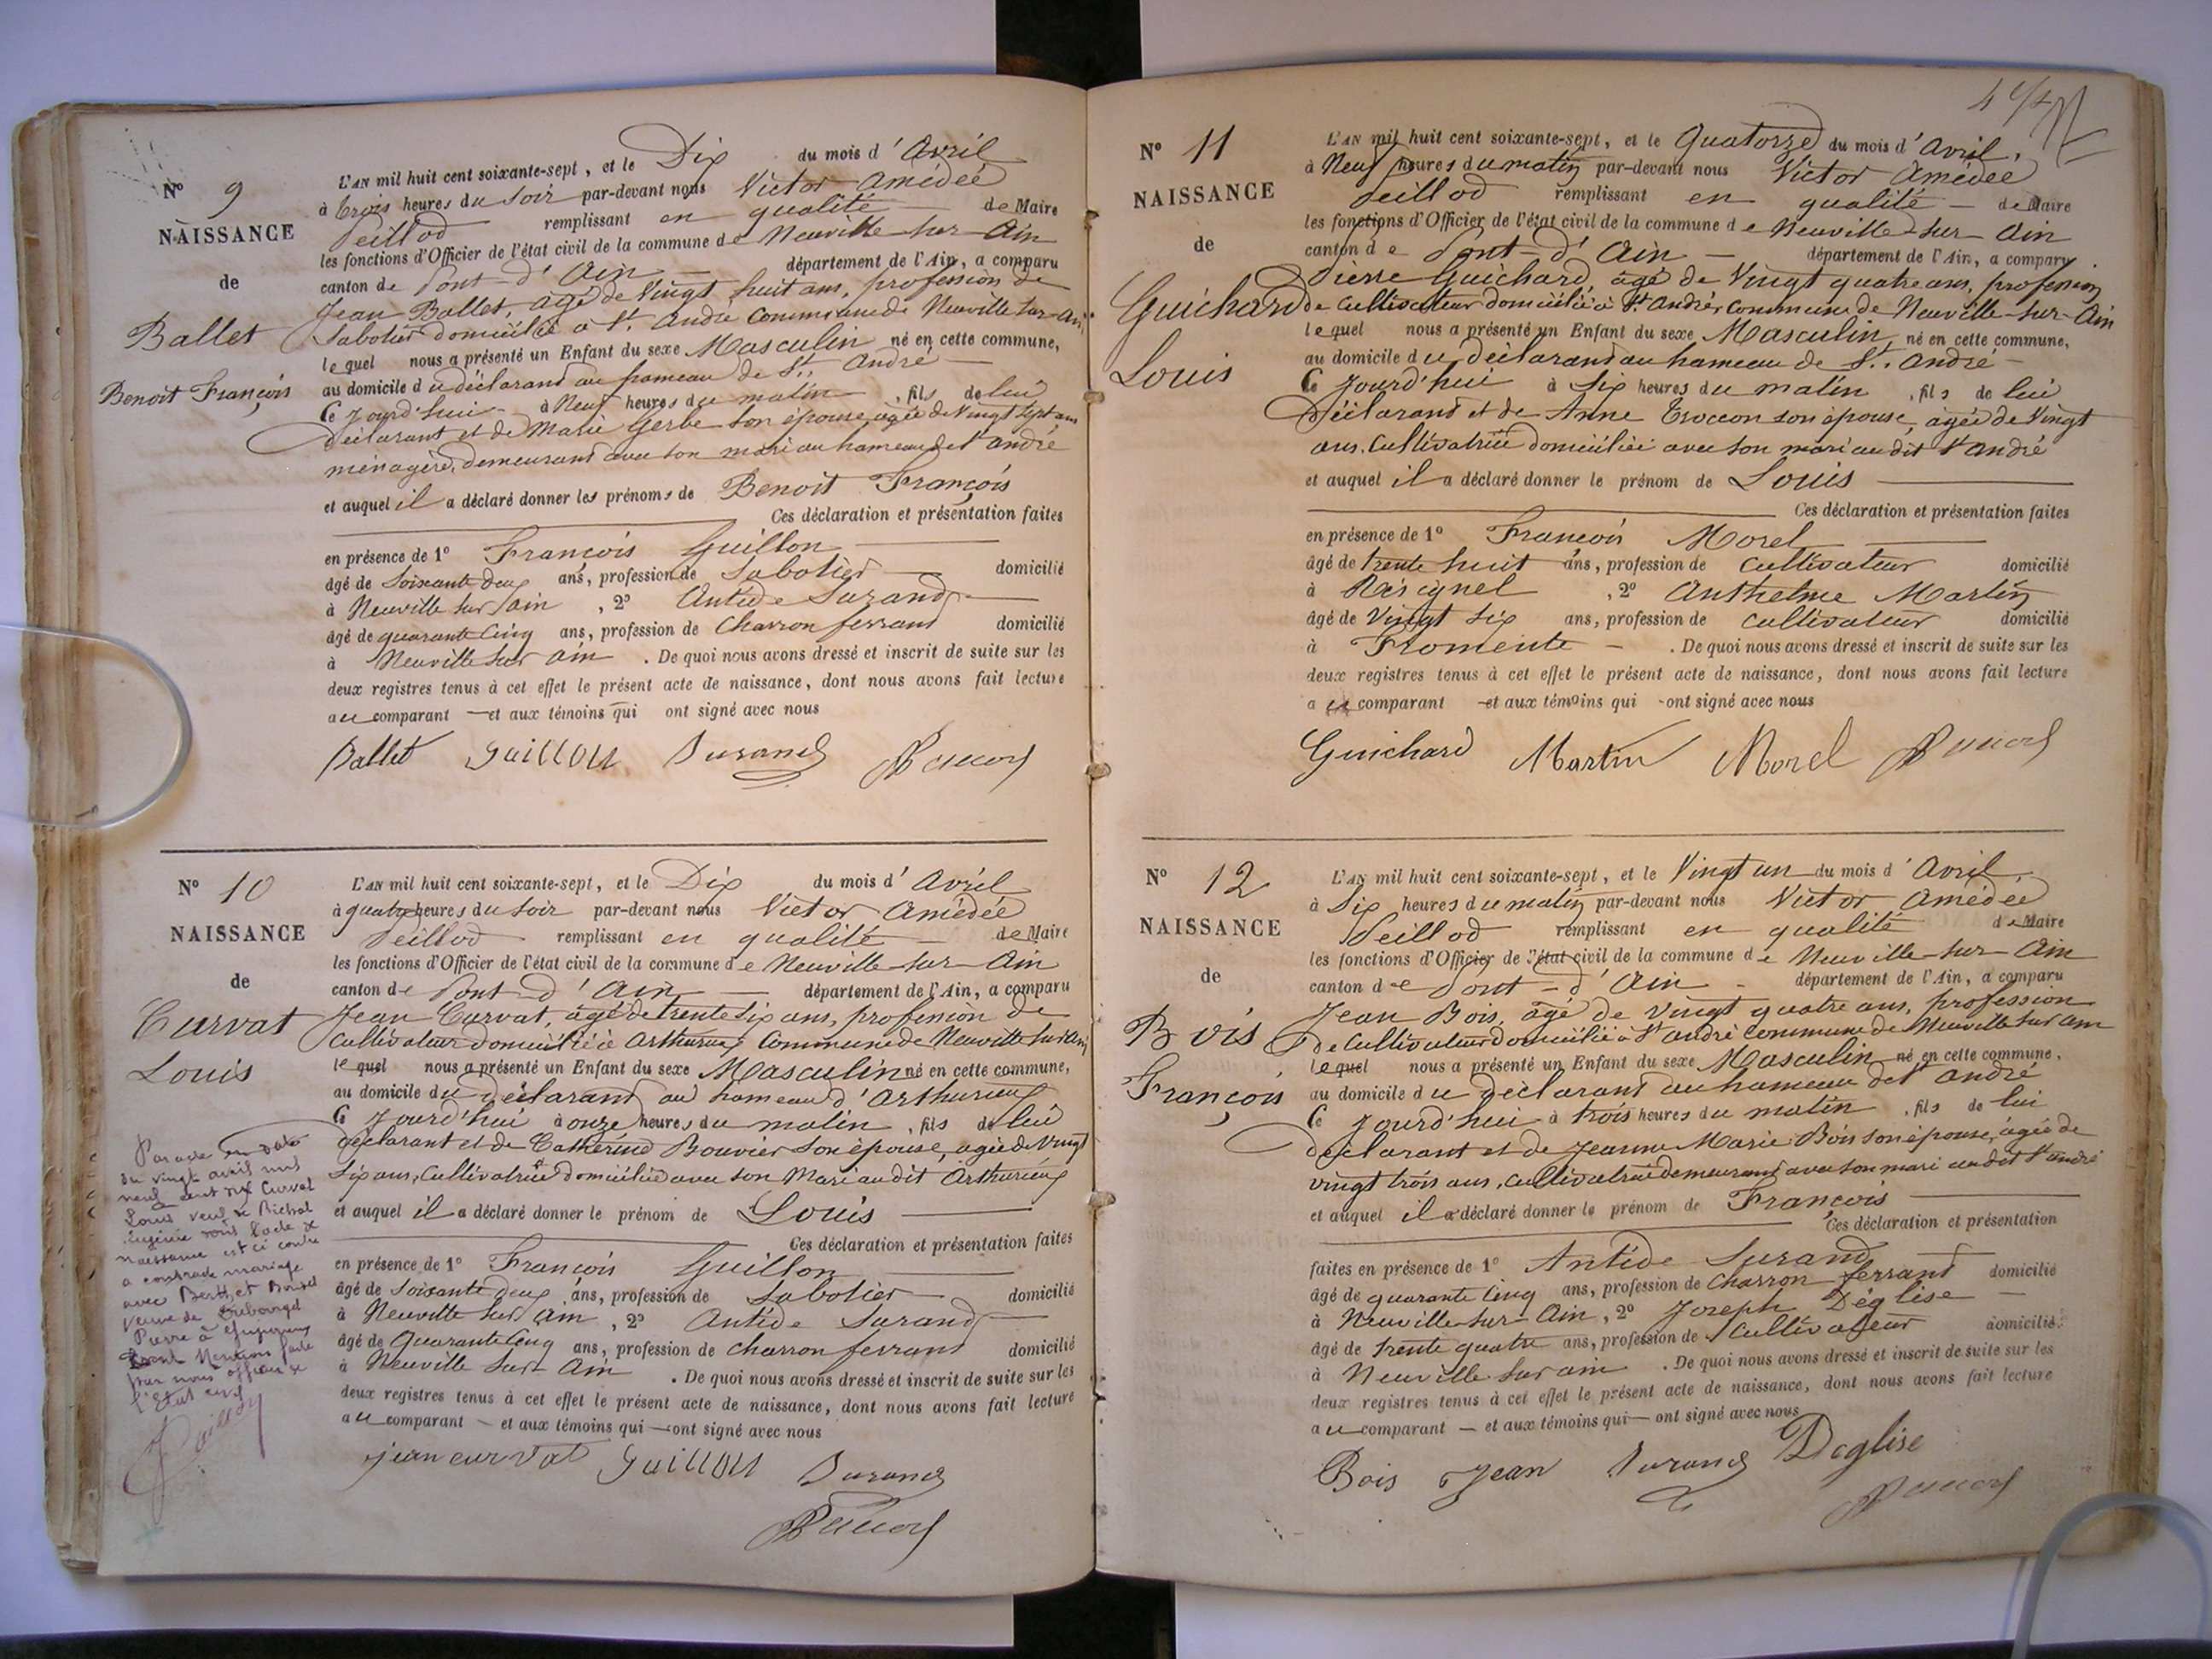 N° 9
NAISSANCE
de
Ballet
Benoit François
L'AN mil huit cent soixante-sept, et le Dix du mois d'Avril
à trois heures du soir par-devant nous Victor Amédée
Peillod remplissant en qualité de Maire
les fonctions d'Officier de l'état civil de la commune de Neuville-sur-Ain
canton de Pont-d'Ain département de l'Ain, a comparu
Jean Ballet, âgé de Vingt huit ans, profession de
Sabotier domicilié à St. André Commune de Neuville-sur-Ain
lequel nous a présenté un Enfant du sexe Masculin né en cette commune,
au domicile du déclarant au hameau de St. André
Ce Jourd'hui à Neuf heures du matin, fils de lui
déclarant et de Marie Gerbe son épouse, agée de Vingt Sept ans
ménagère, demeurant avec son mari au hameau de St André
et auquel il a déclaré donner les prénoms de Benoit François
Ces déclaration et présentation faites
en présence de 1° François Guillon
âgé de Soixante deux ans, profession de Sabotier domicilié
à Neuville sur ain, 2° Antide Durand
âgé de quarante Cinq ans, profession de Charron ferrant domicilié
à Neuville sur ain. De quoi nous avons dressé et inscrit de suite sur les
deux registres tenus à cet effet le présent acte de naissance, dont nous avons fait lecture
au comparant et aux témoins qui ont signé avec nous
Ballet Guillon Durand
N° 10
NAISSANCE
de
Curvat
Louis
L'AN mil huit cent soixante-sept, et le Dix du mois d'Avril
à quatre heures du soir par-devant nous Victor Amédée
Peillod remplissant en qualité de Maire
les fonctions d'Officier de l'état civil de la commune de Neuville-sur-Ain
canton de Pont-d'Ain département de l'Ain, a comparu
Jean Curvat, âgé de trente six ans, profession de
Cultivateur domicilié à Arthurieux Commune de Neuville sur Ain
lequel nous a présenté un Enfant du sexe Masculin né en cette commune,
au domicile du déclarant au hameau d'Arthurieux
Ce Jourd'hui à onze heures du matin, fils de lui
déclarant et de Catherine Bouvier son épouse, agée de Vingt
Six ans, Cultivatrice domiciliée avec son Mari audit Arthurieux
et auquel il a déclaré donner le prénom de Louis
Ces déclaration et présentation faites
en présence de 1° François Guillon
âgé de Soixante deux ans, profession de Sabotier domicilié
à Neuville sur ain, 2° Antide Durand
âgé de Quarante Cinq ans, profession de charron ferrant domicilié
à Neuville sur Ain. De quoi nous avons dressé et inscrit de suite sur les
deux registres tenus à cet effet le présent acte de naissance, dont nous avons fait lecture
au comparant et aux témoins qui ont signé avec nous
jean curvat Guillon Durand
Par acte en date
du vingt avril mil
neuf cent dix Curvat
Louis veuf de
Eugénie dont l'acte de
naissance est ci contre
a contracté mariage
avec
veuve de
Pierre à
Mention faite
par nous officier de
l'Etat civil
N° 11
NAISSANCE
de
Guichard
Louis
L'AN mil huit cent soixante-sept, et le Quatorze du mois d'Avril,
à Neuf heures du matin par-devant nous Victor Amédée
Peillod remplissant en qualité de Maire
les fonctions d'Officier de l'état civil de la commune de Neuville-sur-Ain
canton de Pont-d'Ain département de l'Ain, a comparu
Pierre Guichard, âgé de Vingt quatre ans, profession
de Cultivateur domicilié à St. André, Commune de Neuville-sur-Ain
lequel nous a présenté un Enfant du sexe Masculin, né en cette commune,
au domicile du déclarant au hameau de St. André
Ce Jourd'hui à Six heures du matin, fils de lui
déclarant et de Anne Troccon son épouse, agée de Vingt
ans, Cultivatrice domiciliée avec son mari audit St André
et auquel il a déclaré donner le prénom de Louis
Ces déclaration et présentation faites
en présence de 1° François Morel
âgé de trente huit ans, profession de Cultivateur domicilié
à Résignel, 2° Anthelme Martin
âgé de Vingt six ans, profession de cultivateur domicilié
à Fromente. De quoi nous avons dressé et inscrit de suite sur les
deux registres tenus à cet effet le présent acte de naissance, dont nous avons fait lecture
au comparant et aux témoins qui ont signé avec nous
Guichard Martin Morel
N° 12
NAISSANCE
de
Bois
François
L'AN mil huit cent soixante-sept, et le Vingt un du mois d'Avril
à Six heures du matin par-devant nous Victor Amédée
Peillod remplissant en qualité de Maire
les fonctions d'Officier de l'état civil de la commune de Neuville-sur-Ain
canton de Pont-d'Ain département de l'Ain, a comparu
Jean Bois, âgé de Vingt quatre ans, profession
De Cultivateur domicilié à St André Commune de Neuville sur ain
lequel nous a présenté un Enfant du sexe Masculin né en cette commune,
au domicile du déclarant au hameau de St André
Ce Jourd'hui à trois heures du matin, fils de lui
déclarant et de Jeanne Marie Bois son épouse, agée de
vingt trois ans, cultivatrice demeurant avec son mari audit St André
et auquel il a déclaré donner le prénom de François
Ces déclaration et présentation
faites en présence de 1° Antide Durand
âgé de quarante Cinq ans, profession de Charron ferrant domicilié
à Neuville-sur-Ain, 2° Joseph Déglise
âgé de trente quatre ans, profession de Cultivateur domicilié
à Neuville sur ain. De quoi nous avons dressé et inscrit de suite sur les
deux registres tenus à cet effet le présent acte de naissance, dont nous avons fait lecture
au comparant et aux témoins qui ont signé avec nous
Bois Jean Durand Déglise